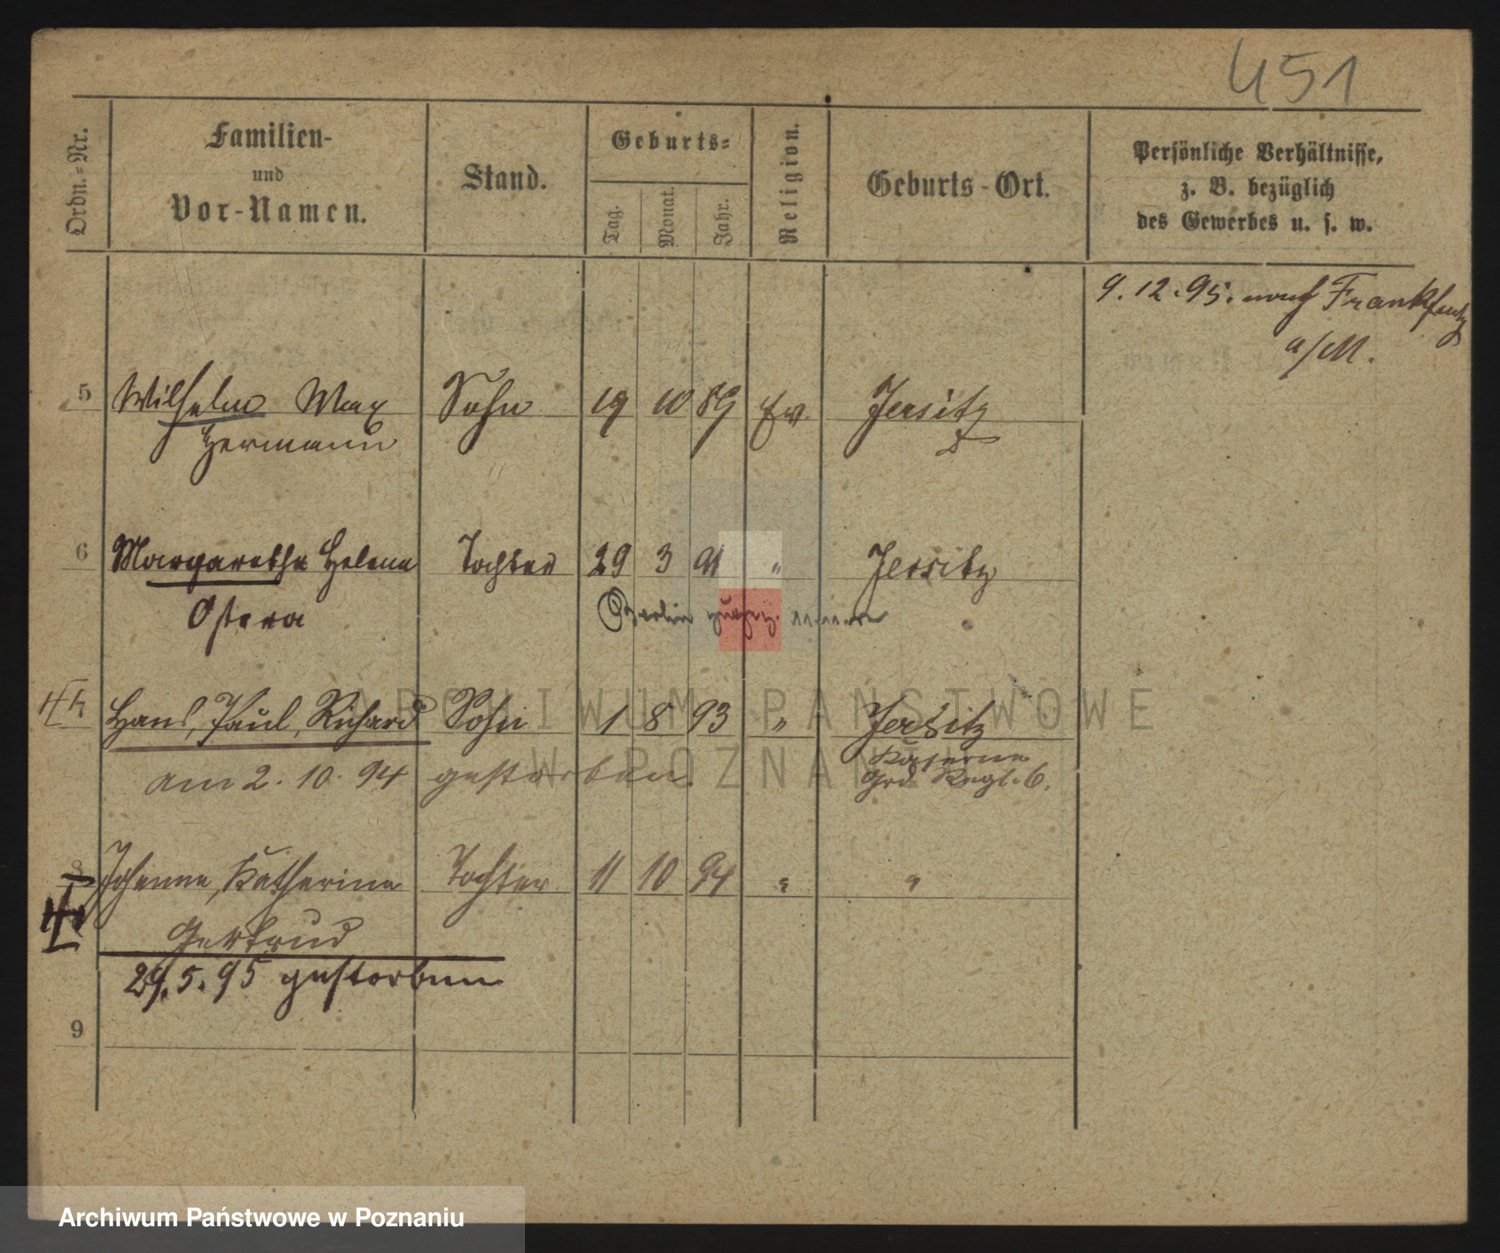 451
Ordn.-Nr.
Familien-
und
Vor-Namen.
Stand.
Geburts-
Tag.
Monat.
Jahr.
Religion.
Geburts-Ort.
Persönliche Verhältnisse,
z. B. bezüglich
des Gewerbes u. s. w.
9. 12. 95. nach Frankfurt
a/M.
5 Wilhelm Max Sohn 19 10 89 Ev. Jersitz
Hermann
6 Margarethe Helene Tochter 29 3 91 " Jersitz
Ostera
Berlin
Hans, Paul, Richard Sohn 1 8 93 " Jersitz
Kaserne
am 2. 10. 94 gestorben. Grd. Regt. 6.
8 Johanne Katharina Tochter 11 10 94 " "
Gertrud
29. 5. 95 gestorben
9
ARCHIWUM PAŃSTWOWE
W POZNANIU
Archiwum Państwowe w Poznaniu